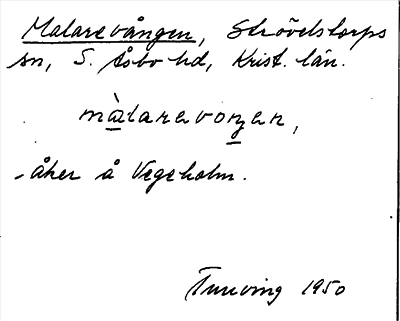 Malarevången, Strövelstorps
sn, S. Åsbo hd, Krist. län.
màlarevoŋen,
- åker å Vegeholm.
Tuneving 1950